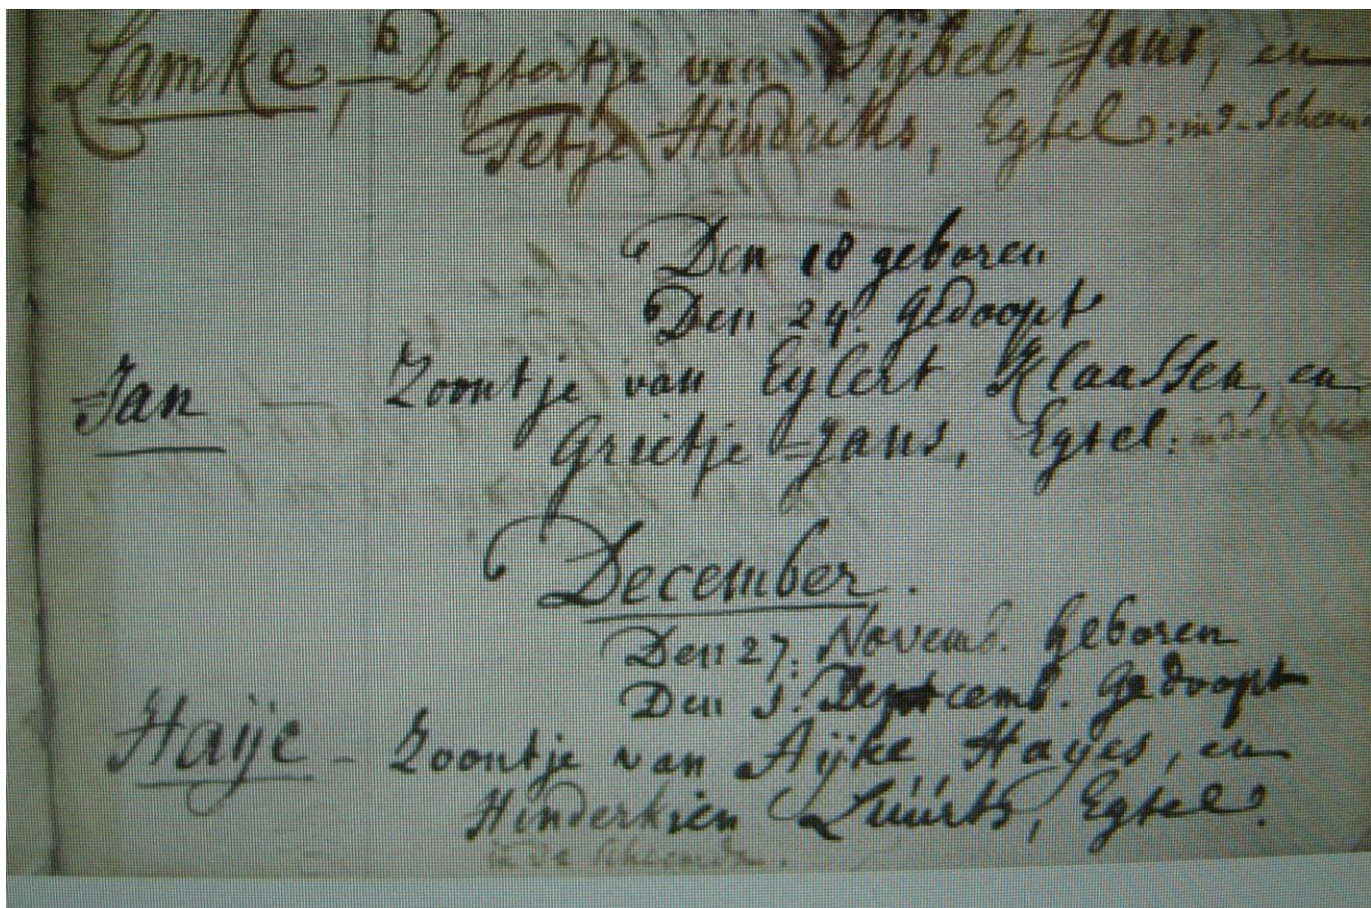 Lamke, - Dogtertje van Sijbelt Jans, en
Tetje Hindriks, Egtel: in d. Scheem
Den 18 geboren
Den 24. Gedoopt
Jan — Zoontje van Eylert Klaassen, en
Grietje Jans, Egtel: in de Scheem
December.
Den 27. Novemb. geboren
Den 1. Decemb. Gedoopt
Haije - Zoontje van Aijke Hayes, en
Hinderkien Luúrts, Egtel:
in de Scheemda.